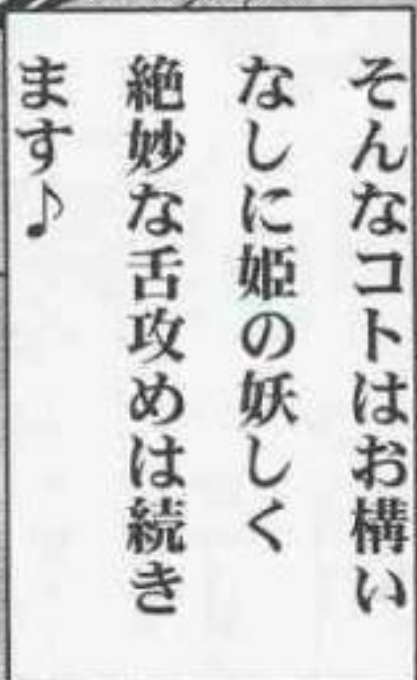 そんなコトはお構い
なしに姫の妖しく
絶妙な舌攻めは続き
ます♪